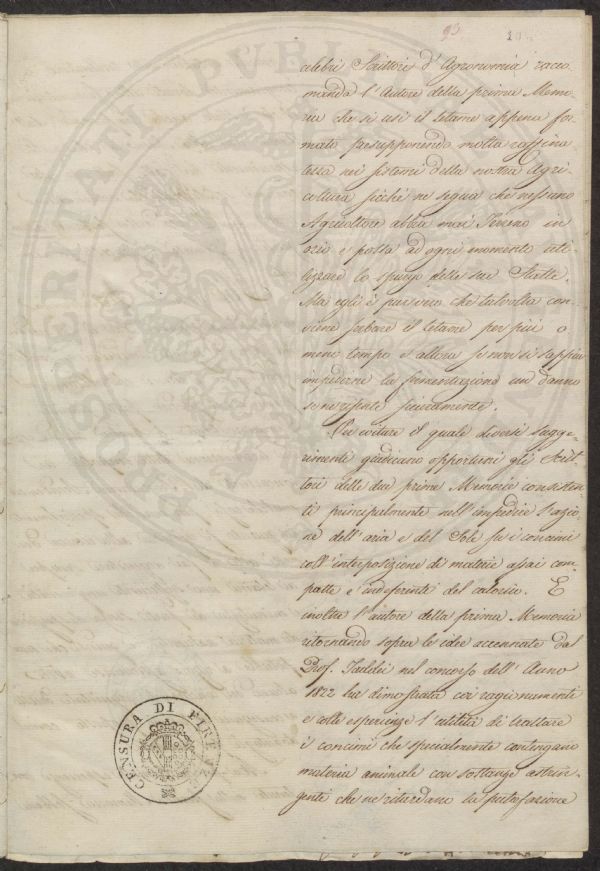 93
celebri Scrittori d'Agronomia racco
manda l'Autore della prima Memo-
ria che si usi il letame appena for
mato presupponendo molta raffina
tezza nei sistemi della nostra Agri
coltura sicché ne segua che nessuno
Agricoltore abbia mai terreno in
ozio e possa ad ogni momento uti-
lizzare lo spurgo delle sue Stalle.
Ma egli è pur vero che talvolta con-
viene serbare il letame per più o
meno tempo e allora se non si sappia
impedirne la fermentazione un danno
se ne risente sicuramente.
Per evitare il quale diversi sugge-
rimenti giudicano opportuni gli Scrit
tori delle due prime Memorie consisten
ti principalmente nell'impedire l'azio
ne dell'aria e del Sole su i concimi
coll'interposizione di materie assai com
patte e indeferenti del calorico. E
inoltre l'autore della prima Memoria
ritornando sopra le idee accennate dal
Prof. Taddei nel concorso dell'Anno
1822 ha dimostrata coi ragionamenti
e colle esperienze l'utilità di trattare
i concimi che specialmente contengano
materia animale con sostanze astrin-
genti che ne ritardano la putrefazione
CENSURA DI FIRENZE
PROSPERITATI PUBLICAE